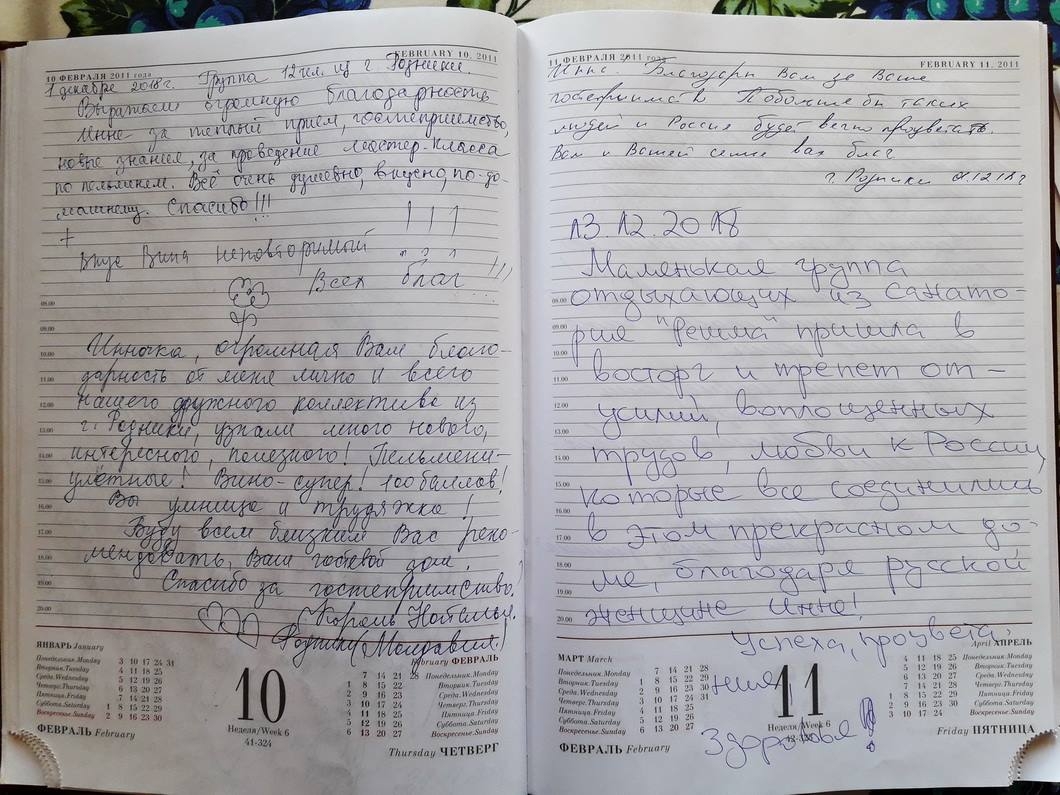 10 ФЕВРАЛЯ 2011 года
FEBRUARY 10, 2011
1 декабря 2018 г. Группа 12 чел. из г. Родники.
Выражаем огромную благодарность
Инне за теплый прием, гостеприимство,
новые знания, за проведение мастер-класса
по пельменям. Всё очень душевно, вкусно, по-до-
машнему. Спасибо!!!
+
Вкус Вина неповторимый !!!
Всех благ!!!
Инночка, огромная Вам благо-
дарность от меня лично и всего
нашего дружного коллектива из
г. Родники, узнали много нового,
интересного, полезного! Пельмени -
улётные! Вино - супер! 100 баллов!
Вы умница и трудяжка!
Буду всем близким Вас реко-
мендовать, Ваш гостевой дом.
Спасибо за гостеприимство!
Король Наталья.
Родники (Молдавия)
08.00
09.00
10.00
11.00
12.00
13.00
14.00
15.00
16.00
17.00
18.00
19.00
20.00
ЯНВАРЬ January
Понедельник.Monday 3 10 17 24 31
Вторник.Tuesday 4 11 18 25
Среда.Wednesday 5 12 19 26
Четверг.Thursday 6 13 20 27
Пятница.Friday 7 14 21 28
Суббота.Saturday 1 8 15 22 29
Воскресенье.Sunday 2 9 16 23 30
ФЕВРАЛЬ February
10
Неделя/Week 6
41-324
February ФЕВРАЛЬ
7 14 21 28 Понедельник.Monday
1 8 15 22 Вторник.Tuesday
2 9 16 23 Среда.Wednesday
3 10 17 24 Четверг.Thursday
4 11 18 25 Пятница.Friday
5 12 19 26 Суббота.Saturday
6 13 20 27 Воскресенье.Sunday
Thursday ЧЕТВЕРГ
11 ФЕВРАЛЯ 2011 года
FEBRUARY 11, 2011
Инна. Благодарю Вам за Ваше
гостеприимств Побольше бы таких
людей и Россия будет вечно процветать.
Вам и Вашей семье благ
г. Родники 12 18 г
13.12.2018
Маленькая группа
отдыхающих из санато-
рия "Решма" пришла в
восторг и трепет от -
усилий, воплощенных
трудов, любви к России,
которые все соединились
в этом прекрасном до-
ме, благодаря русской
женщине Инне!
Успеха, процвета-
ния,
Здоровья!
08.00
09.00
10.00
11.00
12.00
13.00
14.00
15.00
16.00
17.00
18.00
19.00
20.00
МАРТ March
Понедельник.Monday 7 14 21 28
Вторник.Tuesday 1 8 15 22 29
Среда.Wednesday 2 9 16 23 30
Четверг.Thursday 3 10 17 24 31
Пятница.Friday 4 11 18 25
Суббота.Saturday 5 12 19 26
Воскресенье.Sunday 6 13 20 27
ФЕВРАЛЬ February
11
Неделя/Week 6
April АПРЕЛЬ
4 11 18 25 Понедельник.Monday
5 12 19 26 Вторник.Tuesday
6 13 20 27 Среда.Wednesday
7 14 21 28 Четверг.Thursday
1 8 15 22 29 Пятница.Friday
2 9 16 23 30 Суббота.Saturday
3 10 17 24 Воскресенье.Sunday
Friday ПЯТНИЦА